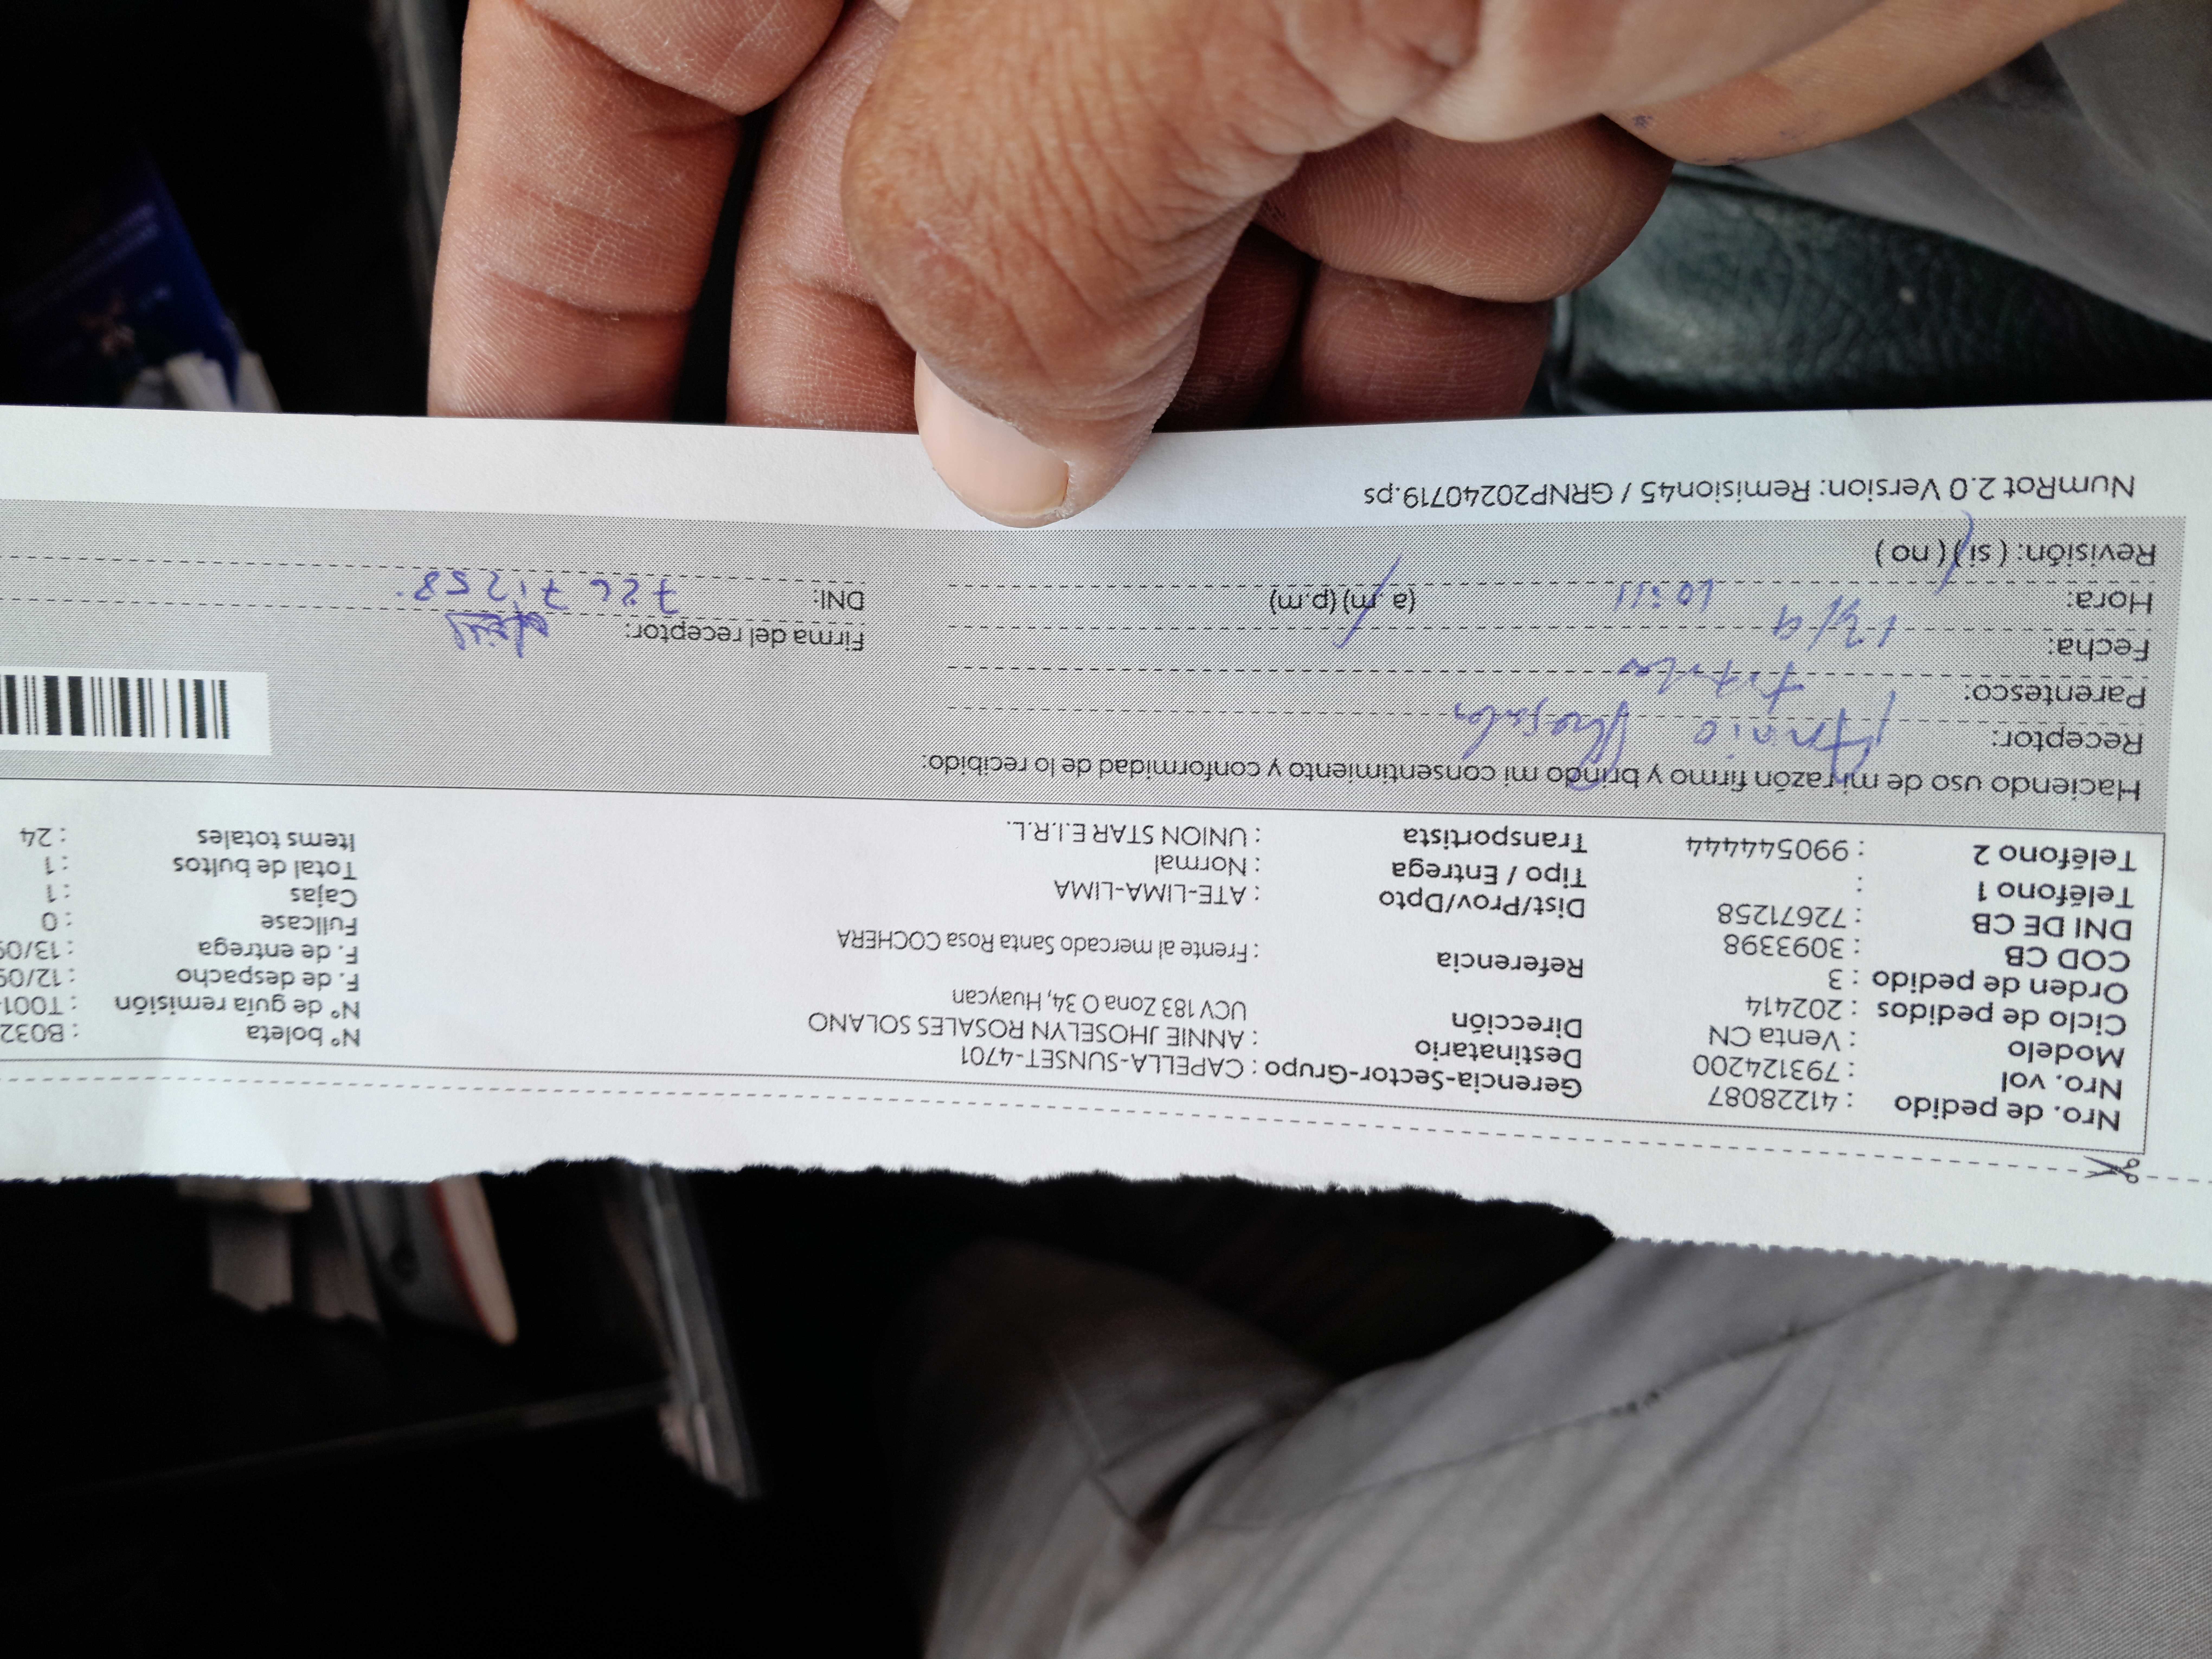 Nro. de pedido : 41228087
Nro. vol : 793124200
Modelo : Venta CN
Ciclo de pedidos : 202414
Orden de pedido : 3
COD CB : 3093398
DNI DE CB : 72671258
Teléfono 1 :
Teléfono 2 : 990544444
Gerencia-Sector-Grupo : CAPELLA-SUNSET-4701
Destinatario : ANNIE JHOSELYN ROSALES SOLANO
Dirección UCV 183 Zona O 34, Huaycan
Referencia : Frente al mercado Santa Rosa COCHERA
Dist/Prov/Dpto : ATE-LIMA-LIMA
Tipo / Entrega : Normal
Transportista : UNION STAR E.I.R.L.
N° boleta : B032
N° de guía remisión : T001-
F. de despacho : 12/09
F. de entrega : 13/09
Fullcase : 0
Cajas : 1
Total de bultos : 1
Items totales : 24
Haciendo uso de mi razón firmo y brindo mi consentimiento y conformidad de lo recibido:
Receptor: Annie Rosales
Parentesco: titular
Fecha: 13/9
Hora: 10:11 (a.m) (p.m)
Revisión: (si) (no)
Firma del receptor:
DNI: 72671258
NumRot 2.0 Version: Remision45 / GRNP20240719.ps